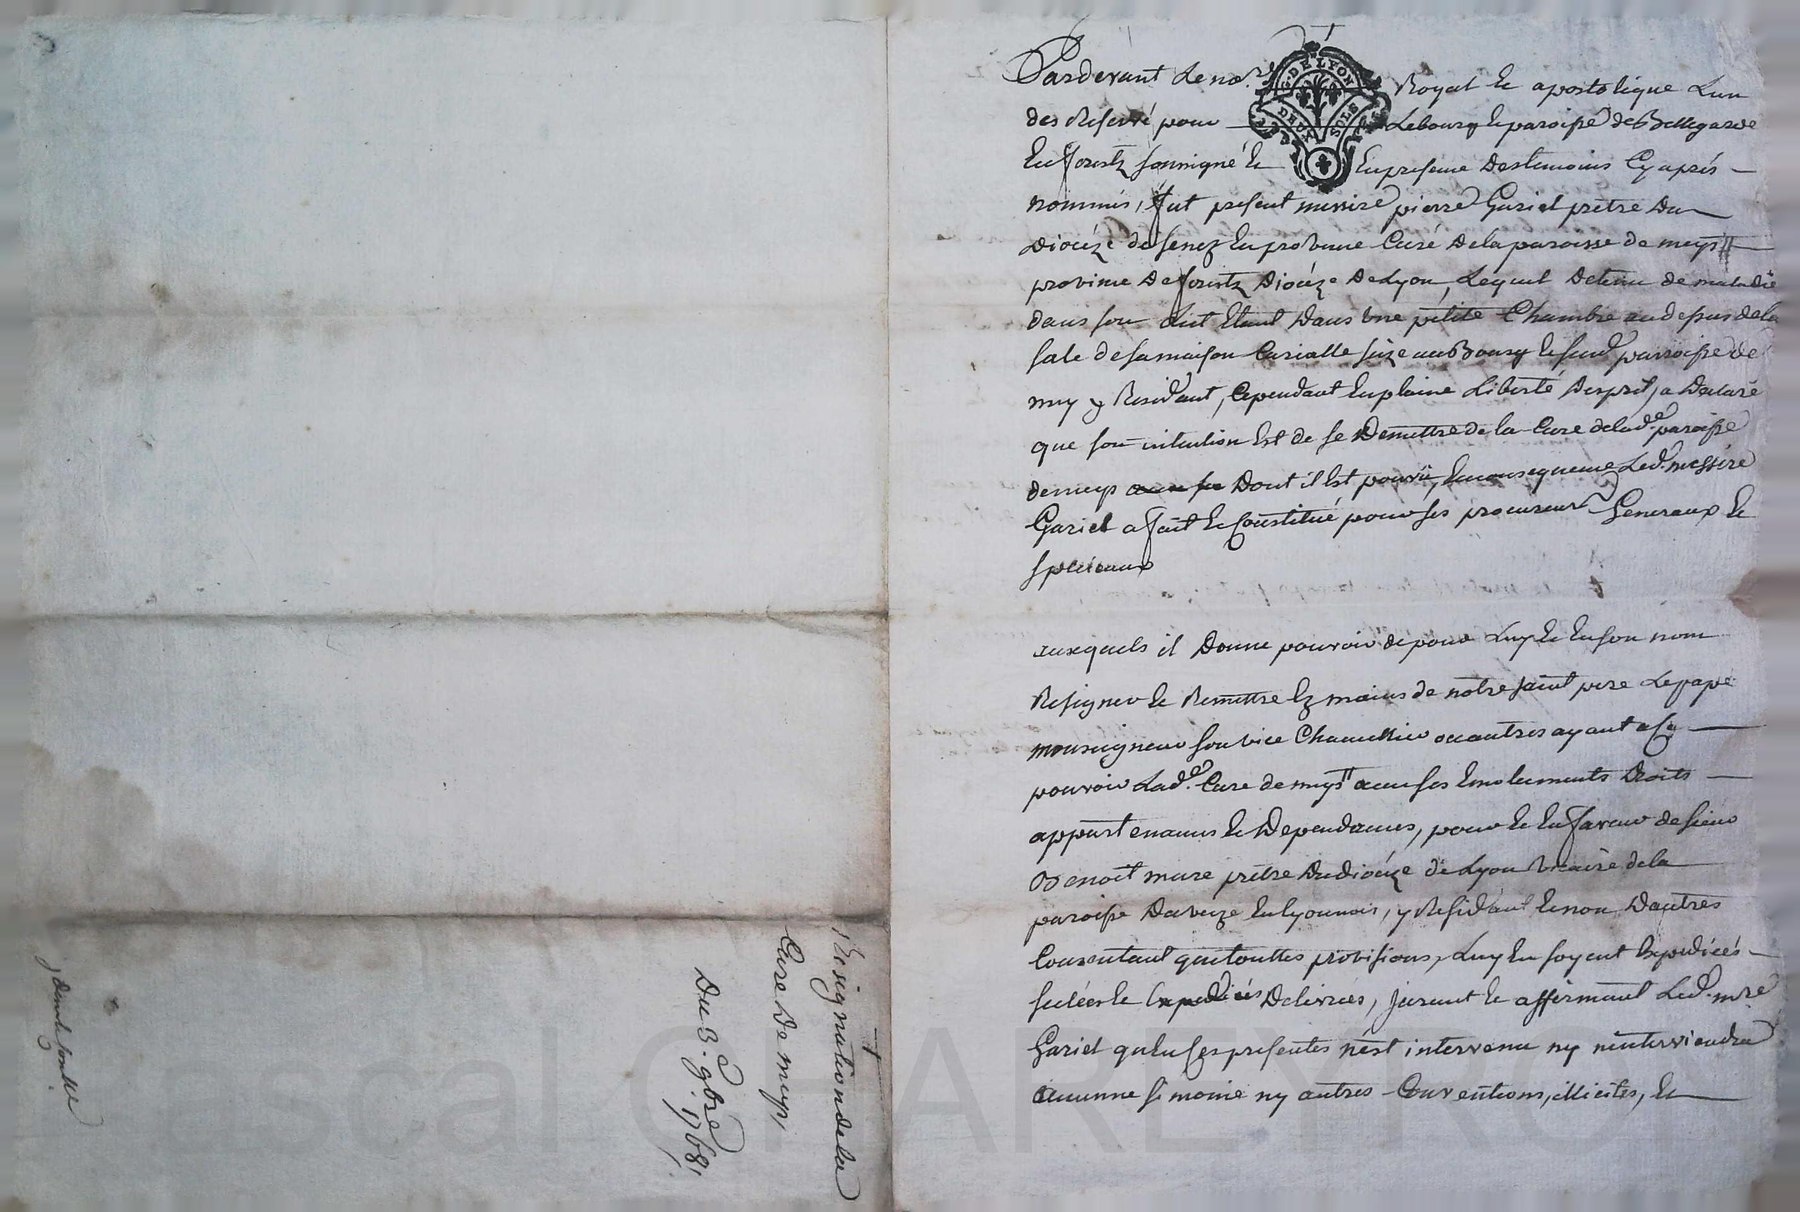 Pardevant Le no.re Royal Et apostolique Lun
G. DE LYON
DEUX SOLS
des Reservé pour Lebourg Et paroisse de Bellegarde
En forestz soussigné Et En presence Des temoins Cy aprés
nommés, fut present messire pierre Gariel prêtre Du
Dioceze de senez En provence Curé De la paroisse de meys
province De forestz Dioceze De Lyon, Lequel Detenu de maladie
dans son Lit Etant Dans Une petite Chambre au dessus de la
sale de sa maison Curialle size au Bourg Et susd. parroisse de
meys y Residant, Cependant En plaine Liberté Desprit, a Declaré
que son intention Est de se Demettre de la Cure de lad.e paroisse
de meys Dont il Est pourvû, En consequence Led. messire
Gariel a fait Et Constitué pour ses procureurs Generaux Et
speciaux
auxquels il Donne pouvoir de pour Luy Et En son nom
Resigner Et Remettre Ez mains de notre saint pere Le pape
monseigneur son vice Chancellier ou autres ayant a Ce
pouvoir Lad.e Cure de meys avec ses Emoluments Droits
appartenances Et Dependances, pour Et En faveur de sieur
Benoit mure prêtre Du dioceze de Lyon Vicaire de la
paroisse Daveize En lyonnois, y Residant Et non Dautres
Consentant que touttes provisions, Luy En soyent Expediées
scelées Et Expediées Delivrées, jurant Et affirmant Led. m.re
Gariel qu'En ses presentes n'est intervenu ny n'interviendra
aucunne simonie ny autres Conventions, illicites, Et
Resignation de la
Cure De meys,
Du 3.e 9bre 1768.
Pascal CHAREYRON